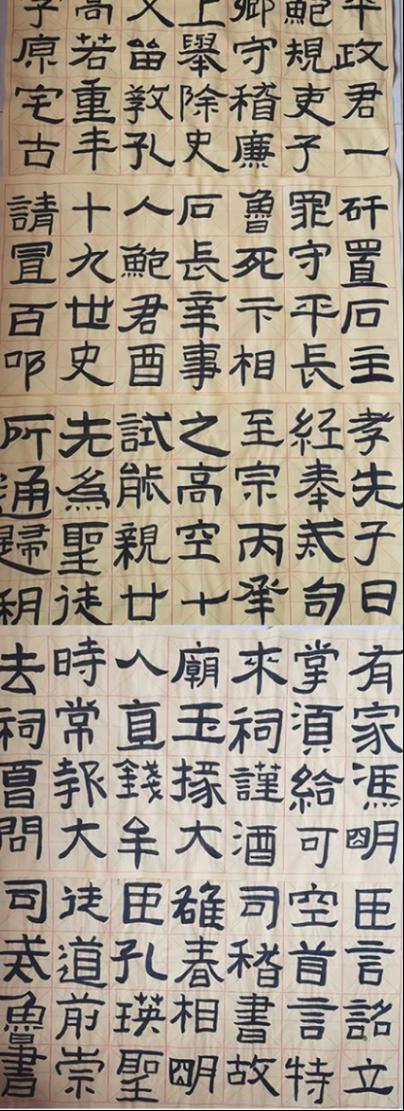 平政君一
鮑規吏子
卿守稽廉
上舉除史
乂畄教孔
高若重
字原宅古
置石主
罪守平長
魯死卞相
石長辛事
人鮑君酉
十九世史
請冝百
孝先子日
経奉戒句
至宗丙承
之高空十
試能親廿
先為聖徒
所通歸
有家馮明
掌須給可
來祠謹酒
廟玉掾大
人直錢牟
時常報大
去祠曹問
臣言詔立
空首言特
司稽書故
雒春相明
臣孔瑛聖
徒道前崇
司戒魯書